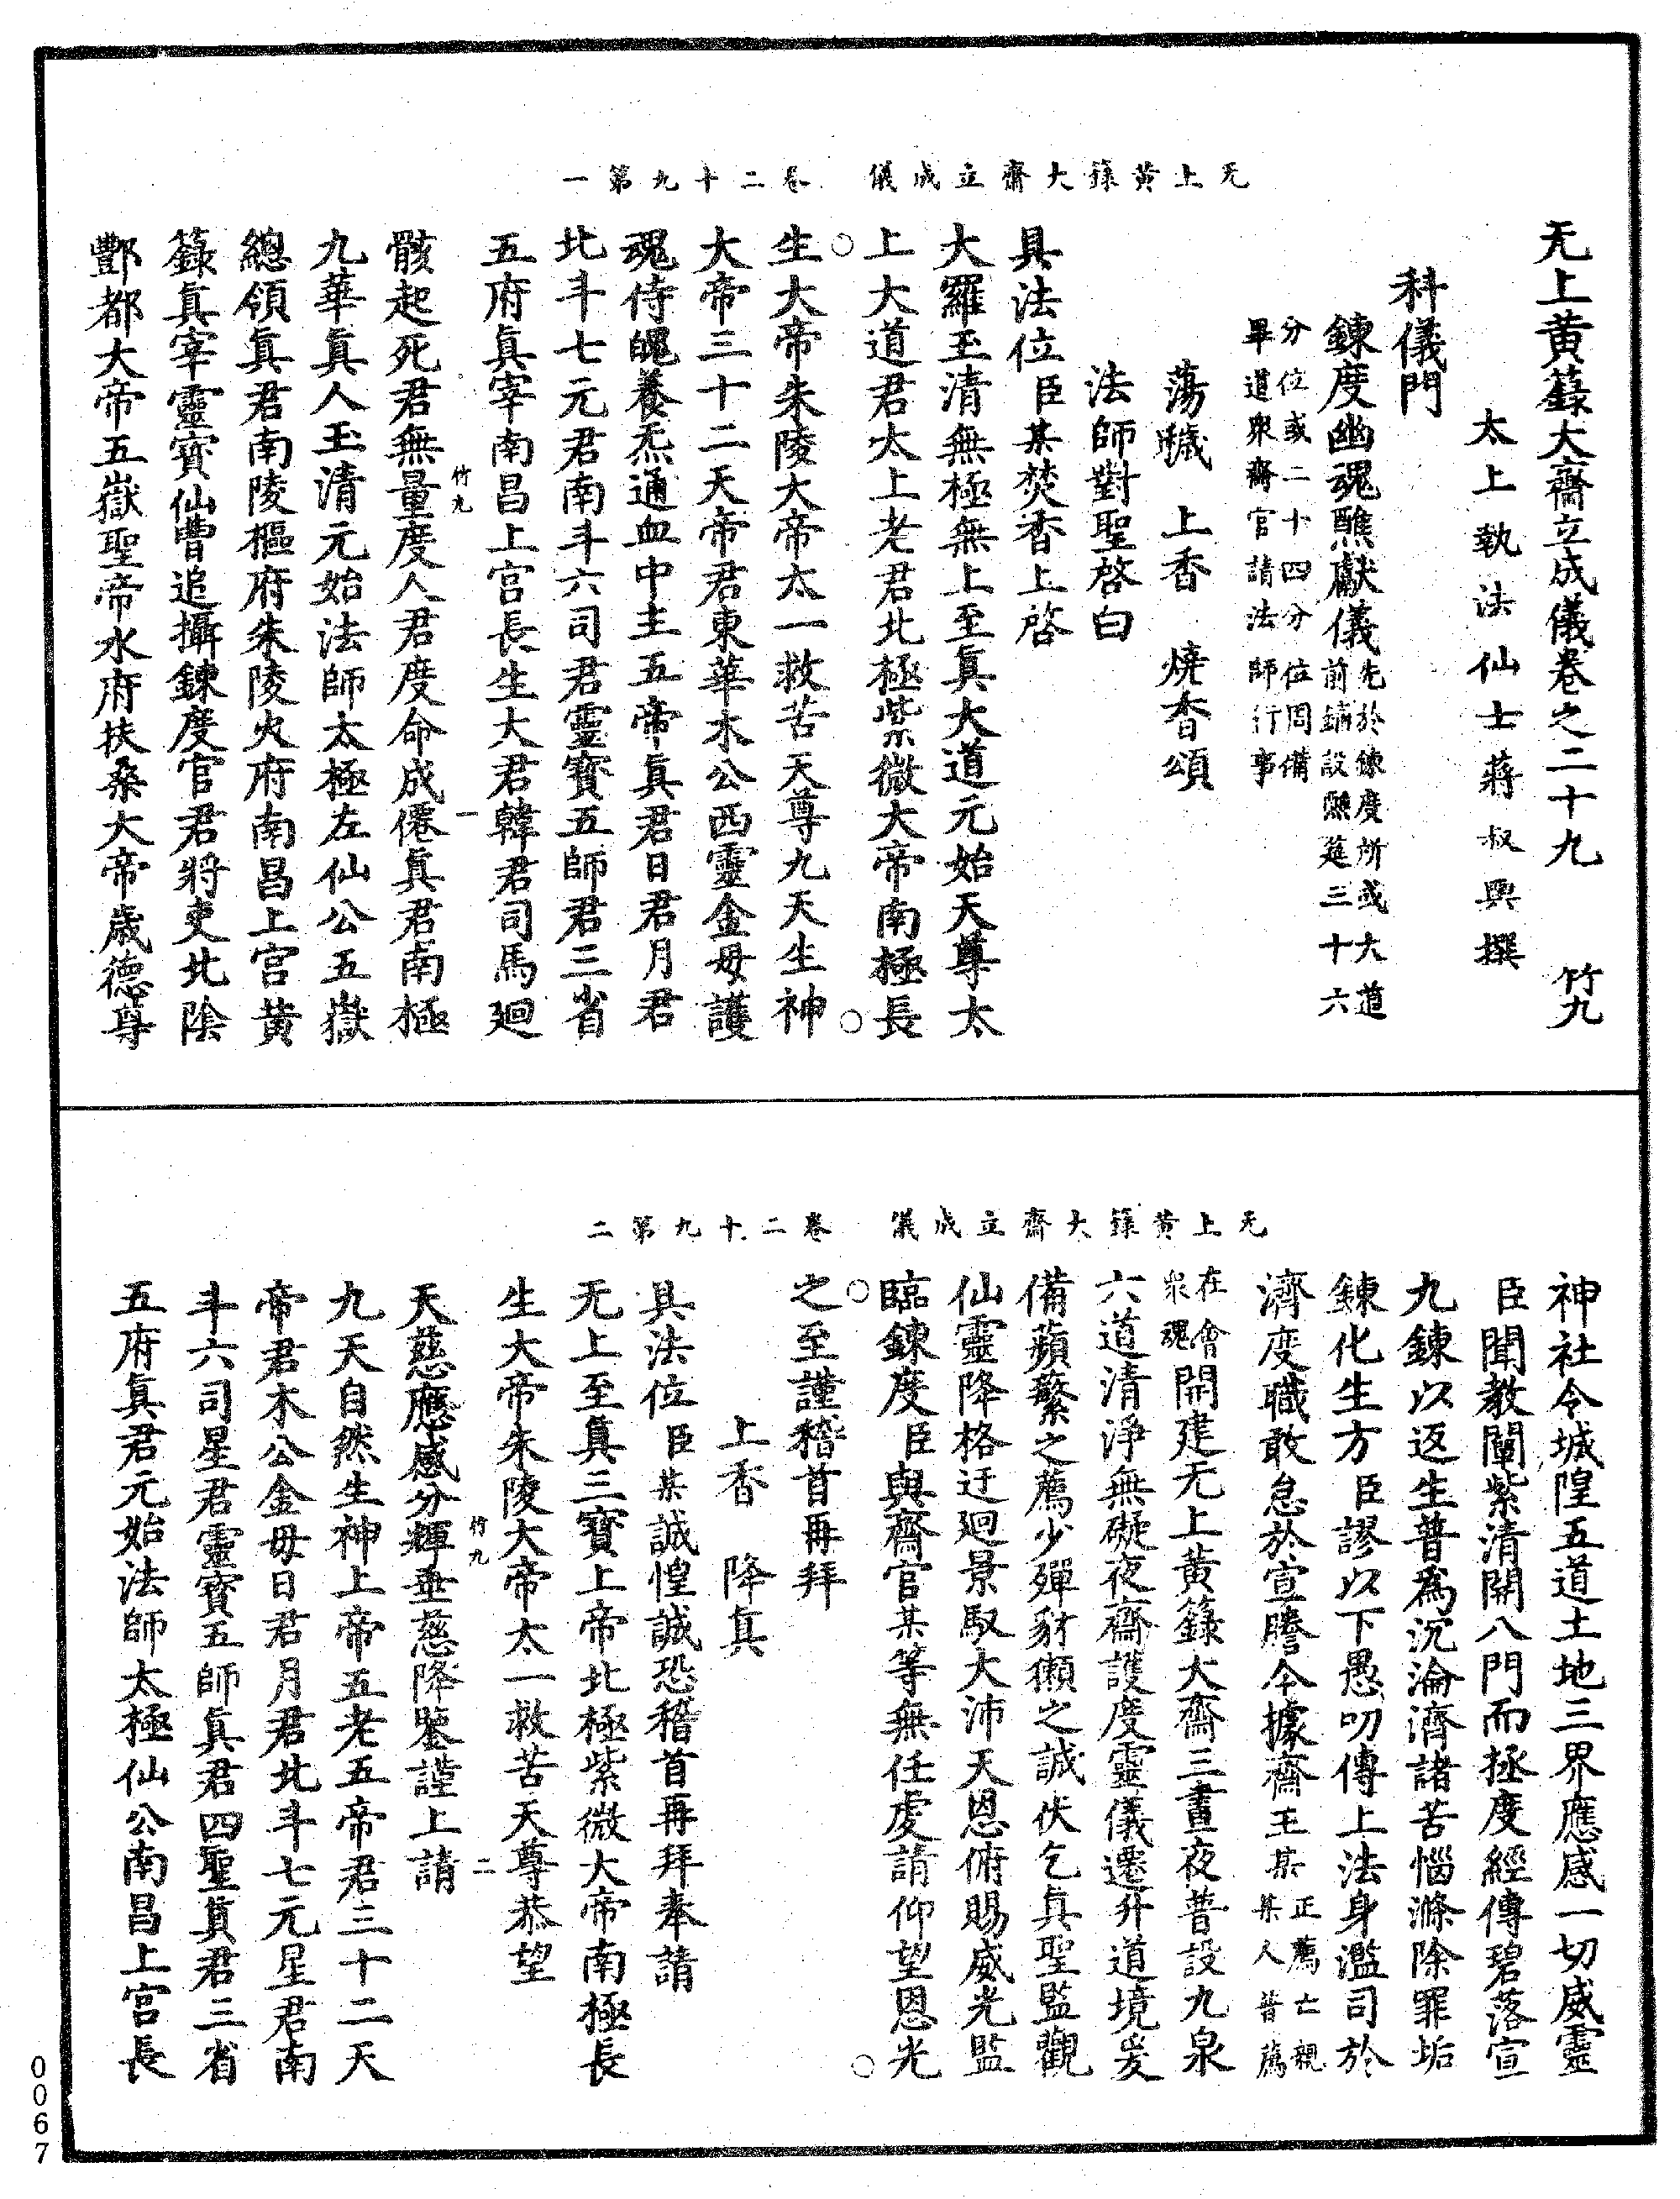 无上黃籙大齋立成儀卷二十九第一
无上黃籙大齋立成儀卷之二十九　竹九
太上執法仙士蔣叔輿撰
科儀門
鍊度幽魂醮獻儀先於鍊度所或大道前鋪設縣筵三十六
分位或二十四分位周備畢道衆齋官請法師行事
蕩穢　上香　燒香頌
法師對聖啓白
具法位臣某焚香上啓
大羅玉清無極無上至眞大道元始天尊太
上大道君太上老君北極紫微大帝南極長
生大帝朱陵大帝太一救苦天尊九天生神
大帝三十二天帝君東華木公西靈金母護
魂侍魄養炁通血中主五帝眞君日君月君
北斗七元君南斗六司君靈寶五師君三省
五府眞宰南昌上宮長生大君韓君司馬廻
竹九　一
骸起死君無量度人君度命成僊眞君南極
九華眞人玉清元始法師太極左仙公五嶽
總領眞君南陵樞府朱陵火府南昌上宮黃
籙眞宰靈寶仙曹追攝鍊度官君將吏北陰
酆都大帝五嶽聖帝水府扶桑大帝歲德尊
无上黃籙大齋立成儀卷二十九第二
神社令城隍五道土地三界應感一切威靈
臣聞教闡紫清開八門而拯度經傳碧落宣
九鍊以返生普爲沉淪濟諸苦惱滌除罪垢
鍊化生方臣謬以下愚叨傳上法身濫司於
濟度職敢怠於宣謄今據齋主某正薦亡親某人普薦
在會衆魂開建无上黃籙大齋三晝夜普設九泉
六道清淨無礙夜齋護度靈儀遷升道境爰
備蘋蘩之薦少殫豺獺之誠伏乞眞聖監觀
仙靈降格迂廻景馭大沛天恩俯賜威光監
臨鍊度臣與齋官某等無任虔請仰望恩光
之至謹稽首再拜
上香　降眞
具法位臣某誠惶誠恐稽首再拜奉請
无上至眞三寶上帝北極紫微大帝南極長
生大帝朱陵大帝太一救苦天尊恭望
竹九　二
天慈應感分輝垂慈降鑒謹上請
九天自然生神上帝五老五帝君三十二天
帝君木公金母日君月君北斗七元星君南
斗六司星君靈寶五師眞君四聖眞君三省
五府眞君元始法師太極仙公南昌上宮長
0067